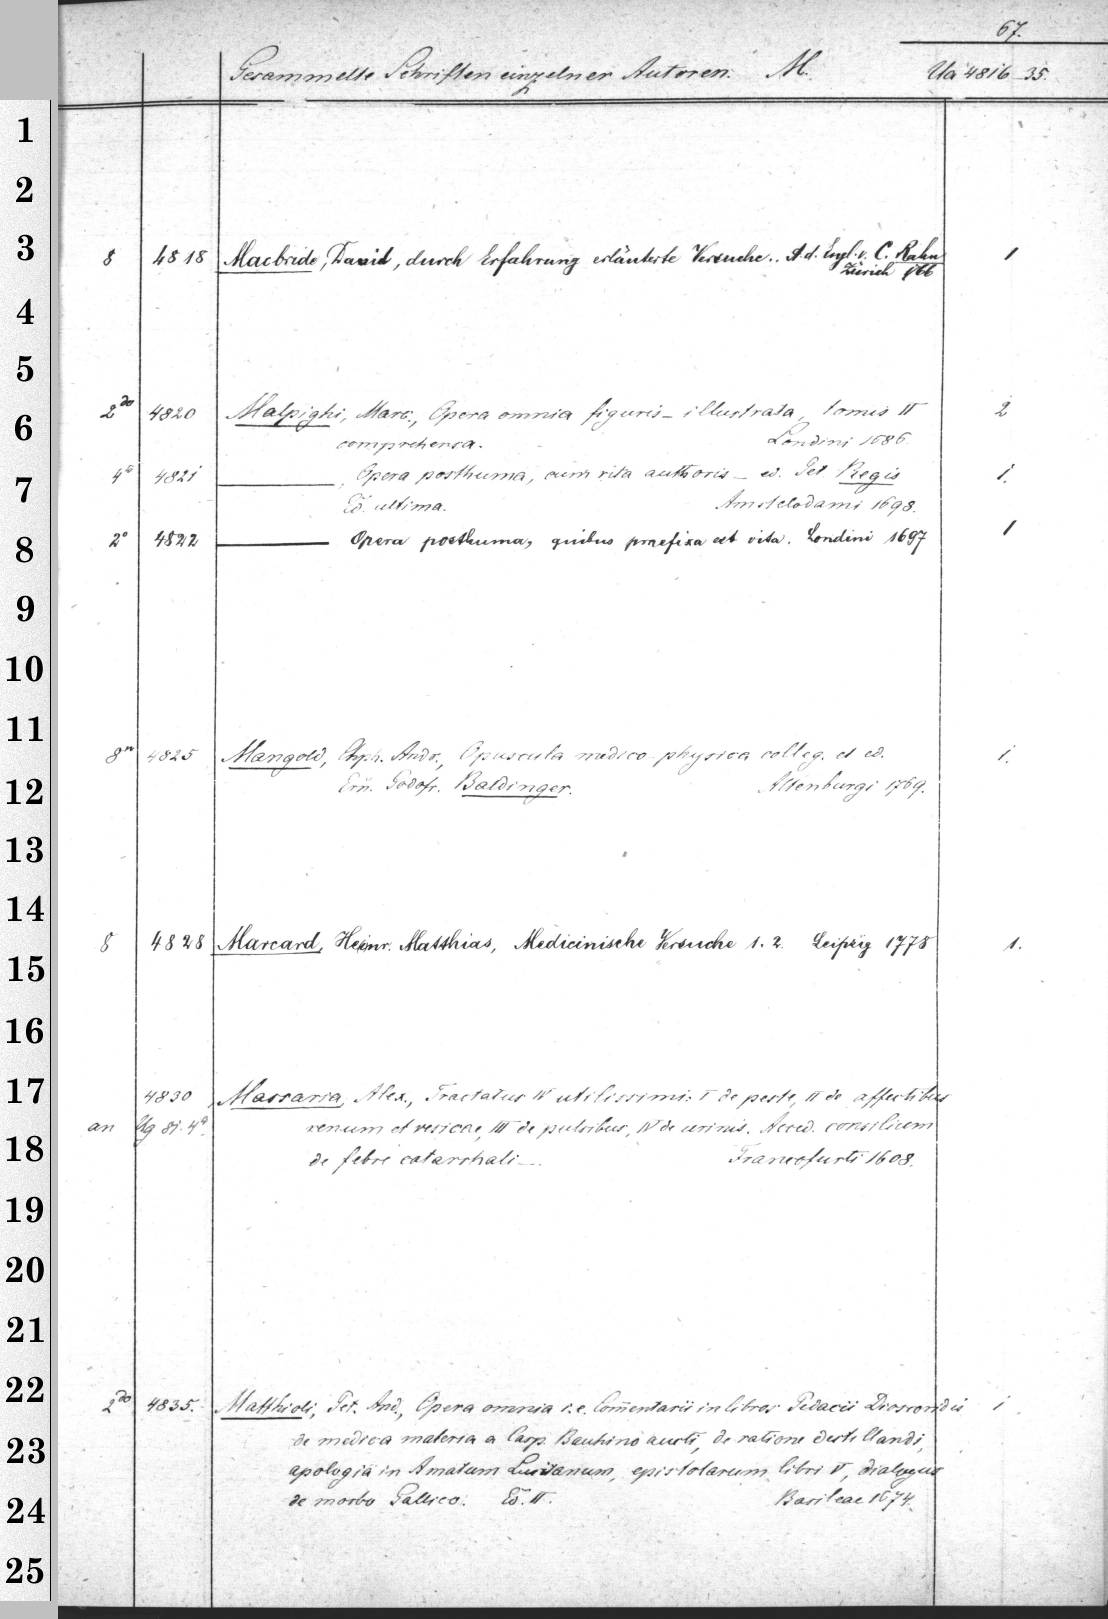 67.
Gesammelte Schriften einzelner Autoren. M. Ua 4816-35.
8 4818 Macbride, David, durch Erfahrung erläuterte Versuche.. A. d. Engl. v. C. Rahn 1
Zürich 766
2do 4820 Malpighi, Marc., Opera omnia figuris - illustrata, tomis II 2
comprehensa. Londini 1686.
4o 4821 ———, Opera posthuma, cum vita authoris - ed. Pet. Regis 1.
Ed. ultima. Amstelodami 1698.
2o 4822 ——— Opera posthuma, quibus praefixa est vita. Londini 1697 1
8vo 4825 Mangold, Chph. Andr., Opuscula medico physica colleg. et ed. 1.
Ern. Godofr. Baldinger. Altenburgi 1769.
8 4828 Marcard, Heinr. Matthias, Medicinische Versuche 1. 2. Leipzig 1778 1.
4830 Massaria, Alex., Tractatus IV utilissimi: I de peste, II de affectibus
an Ug 81. 4o. renum et vesicae, III de pulsibus, IV de urinis. Acced. consilium
de febre catarrhali -. Francofurti 1608.
2do 4835. Matthioli, Pet. And., Opera omnia i. e. Com̄entarii in libros Pedacii Dioscoridis 1
de medica materia a Casp. Bauhino aucti, de ratione destillandi,
apologia in Amatum Lusitanum, epistolarum libri V, dialogus
de morbo Gallico. Ed. II. Basileae 1674.
1
2
3
4
5
6
7
8
9
10
11
12
13
14
15
16
17
18
19
20
21
22
23
24
25